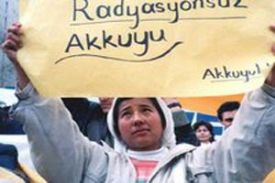 Radyasyonsuz
Akkuyu
Akkuyu'